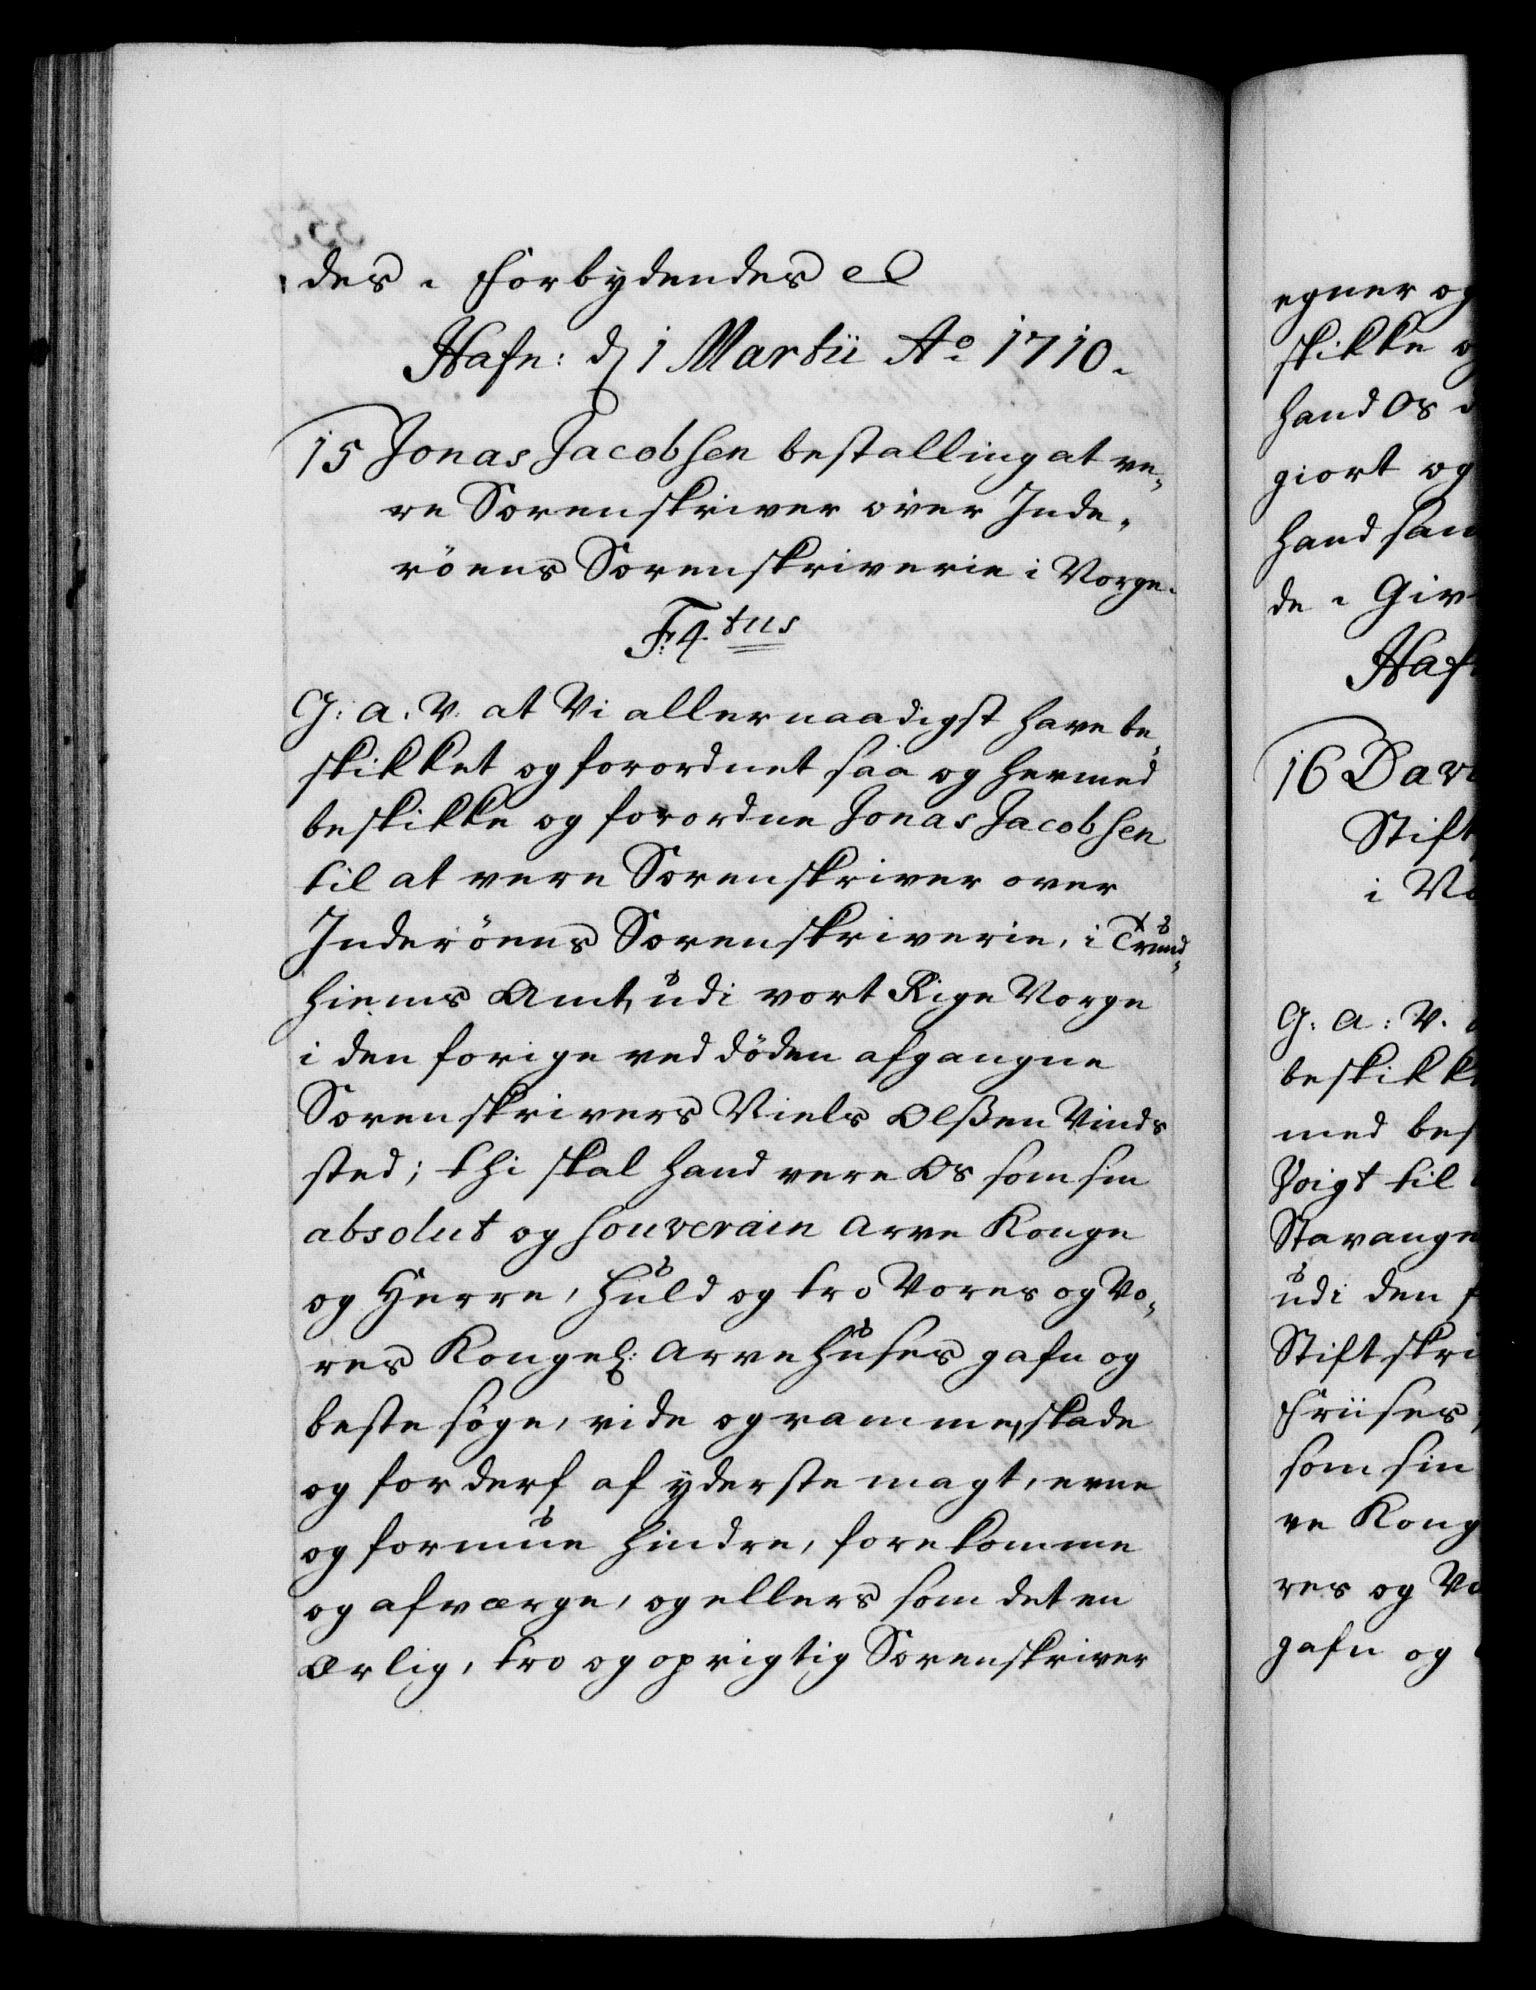 des . Forbydendes etc
Hafn: d 1 Martii Ao 1710.
15 Jonas Jacobsen bestalling at ve-
re Sorenskriver over Inde-
röens Sorenskriverie i Norge.
F: 4tus
G: a: V: at Vi allernaadigst have be-
skikket og forordnet saa og hermed
beskikke og forordne Jonas Jacobsen
til at vere Sorenskriver over
Inderöens Sorenskriverie, i Trund-
hiems Amt, udi vort Rige Norge
i den forige ved döden afgangne
Sorenskrivers Niels Olßen Vinds
sted; thi skal hand vere Os som sin
absolut og souverain Arve Konge
og Herre, huld og tro Vores og Vo-
res Kongel: Arvehuses gafn og
beste söge, vide og ramme, skade
og forderf af yderste magt, evne
og formue hindre, forekomme
og afværge, og ellers som det en
ærlig, tro og oprigtig Sorenskriver
egner og
skikke og
hand Os d
giort og
hand sam
de . Giv
Haf
16 Davi
Stift
i No
G: a: V.
beskikk
med bes
Voigt til
Stavange
udi den f
Stiftskri
Friises,
som sin
ve Kong
res og Vo
gafn og